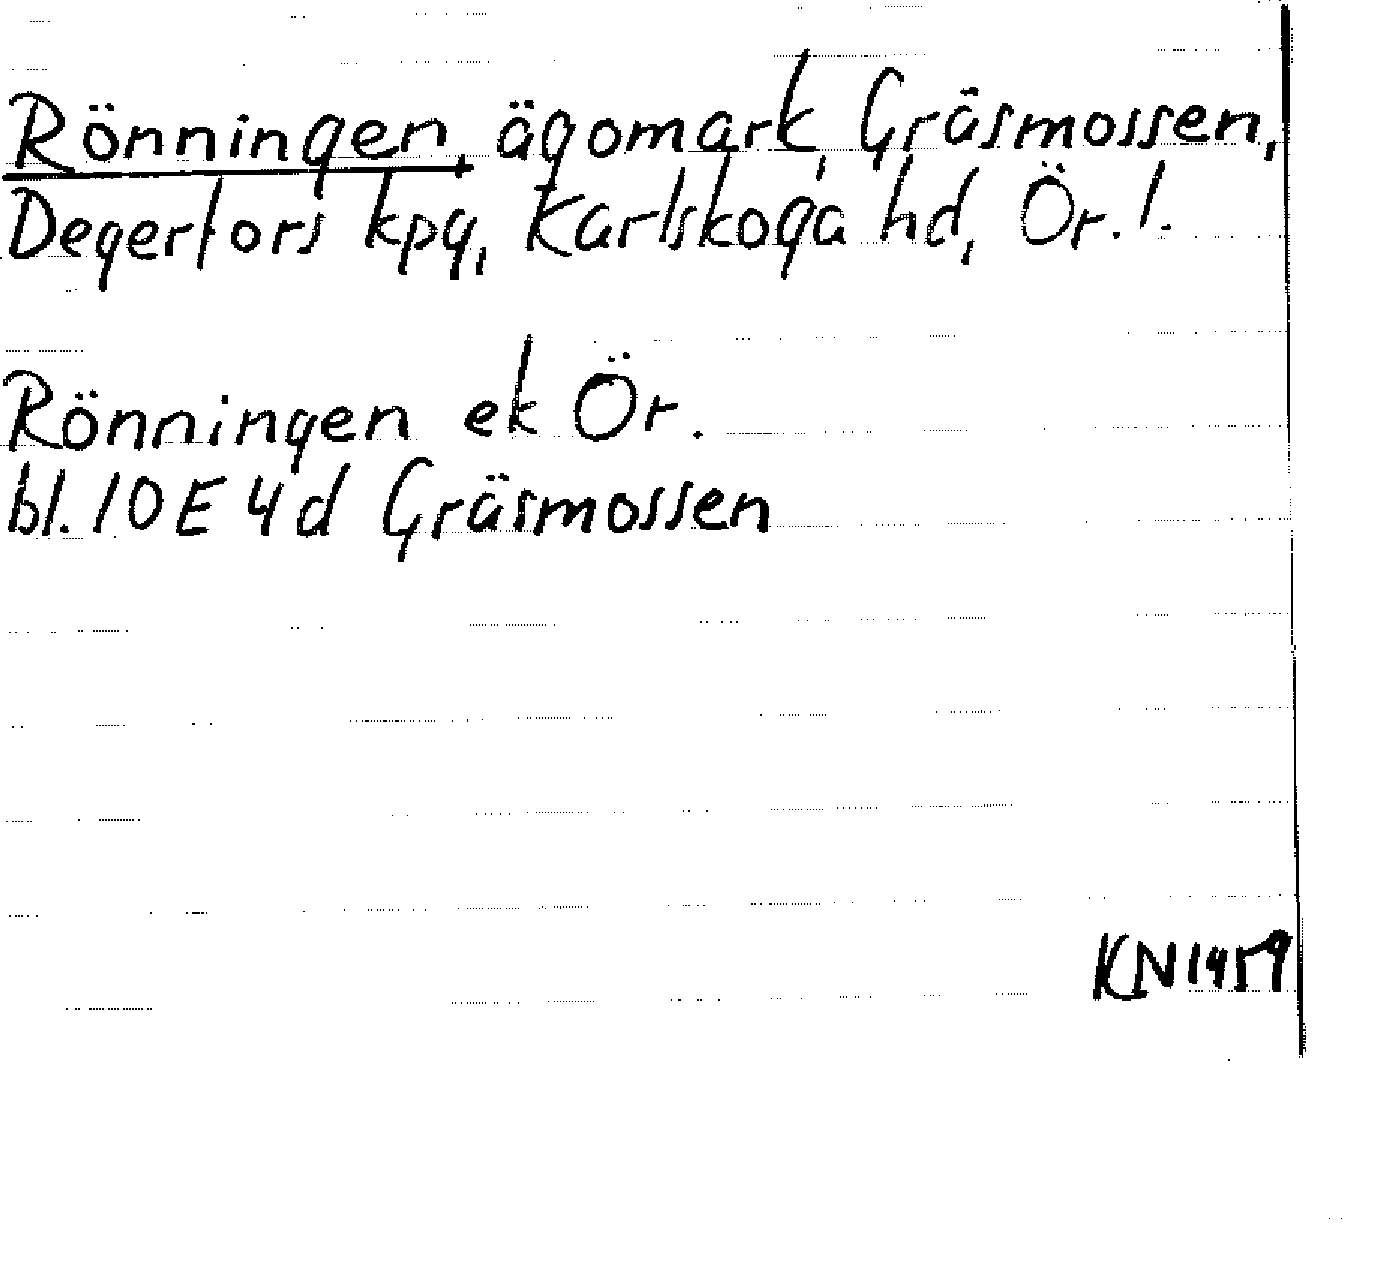 Rönningen, ägomark, Gräsmossen,
Degerfors kpg, Karlskoga hd, Ör. l.
Rönningen ek Ör.
bl. 10 E 4d Gräsmossen
KN 1959